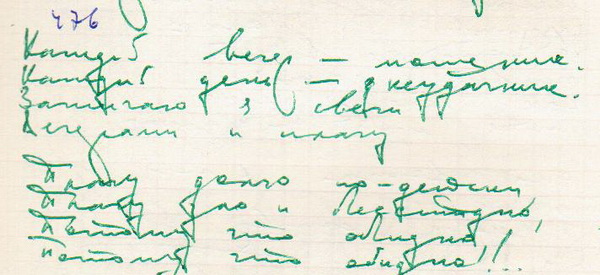 476
Каждый вечер — мошенник.
Каждый день — неудачник.
Зажигаю я свечи
Вечерами и плачу
Плачу долго по-детски,
Плачу зло и бесстыдно,
Потому что обидно,
Потому что обидно!!